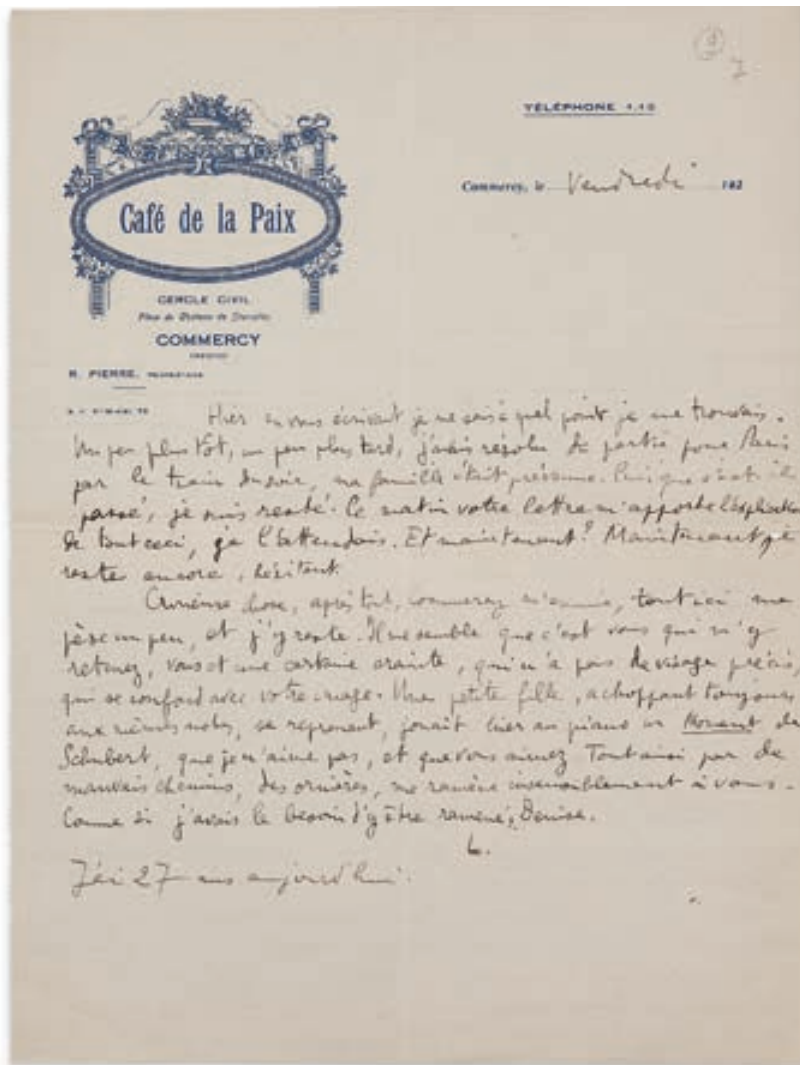 7
TÉLÉPHONE 1.10
Café de la Paix
Commercy, le Vendredi 192
CERCLE CIVIL
Place du
COMMERCY
R. PIERRE,
Hier en vous écrivant je ne sais à quel point je me trouvais.
Un peu plus tôt, un peu plus tard, j'avais résolu de partir pour Paris
par le train du soir, ma famille était prévenue. Puis que s'est-il
passé, je suis resté. Ce matin votre lettre m'apporte l'explication
de tout ceci, je l'attendais. Et maintenant? Maintenant je
reste encore, hésitant.
Curieuse chose, après tout, Commercy m'ennuie, tout ici me
pèse un peu, et j'y reste. Il me semble que c'est vous qui m'y
retenez, vous et une certaine crainte, qui n'a pas de visage précis,
qui se confond avec votre image. Une petite fille, achoppant toujours
aux mêmes notes, se reprenant, jouait hier au piano un Moment de
Schubert, que je n'aime pas, et que vous aimez. Tout ainsi par de
mauvais chemins, des ornières, me ramène insensiblement à vous.
Comme si j'avais le besoin d'y être ramené, Denise.
L.
J'ai 27 ans aujourd'hui.